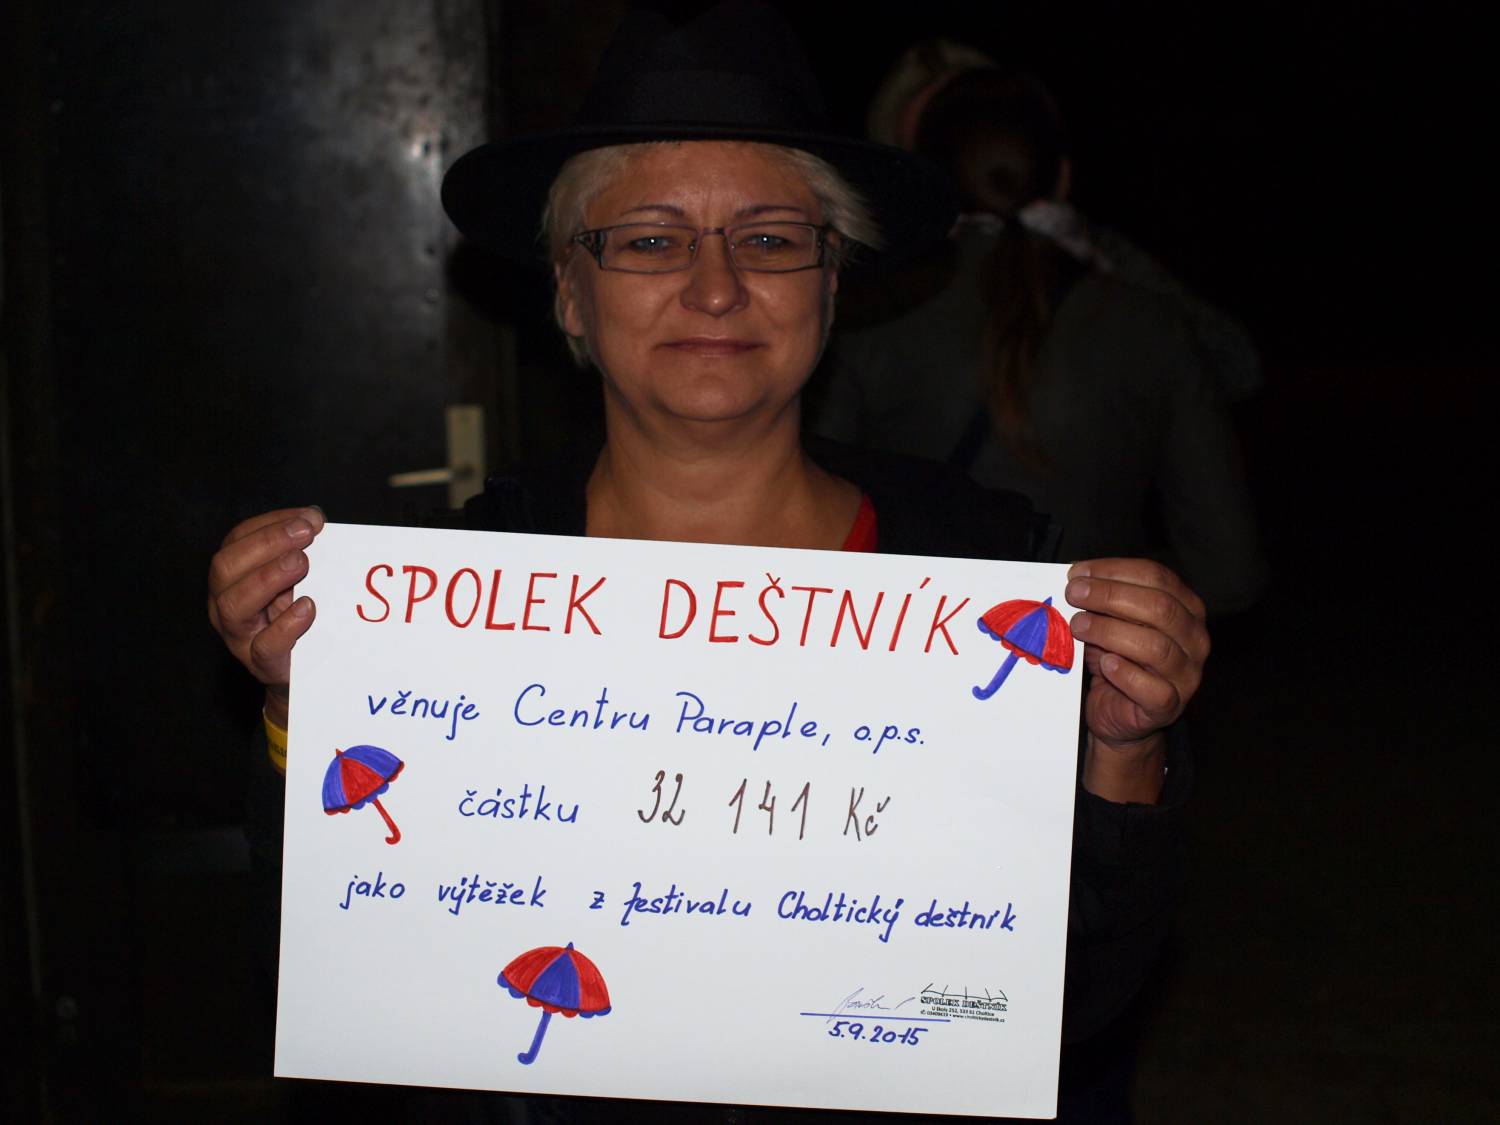 SPOLEK DEŠTNÍK
věnuje Centru Paraple, o.p.s.
částku 32 141 Kč
jako výtěžek z festivalu Choltický deštník
SPOLEK DEŠTNÍK
U Školy 252, 533 61 Choltice
5.9.2015